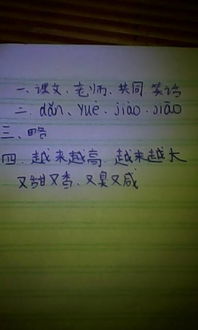 一、课文、老师、共同 笑话
二、dǎn、yuè、jiào、jiāo
三、略
四、越来越高、越来越长
又甜又香、又臭又咸